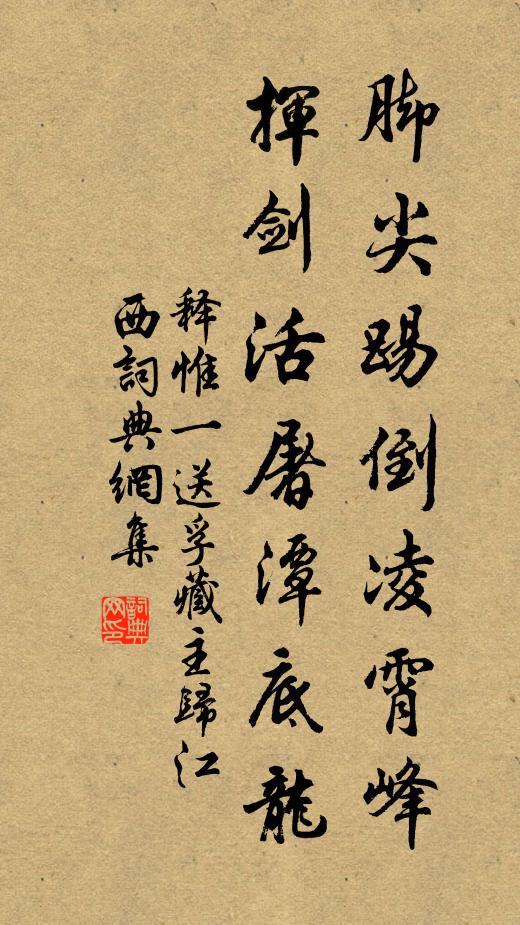 脚尖踢倒凌霄峰
揮劍活屠潭底龍
释惟一送孚藏主歸江
西詞典網集
詞典网印